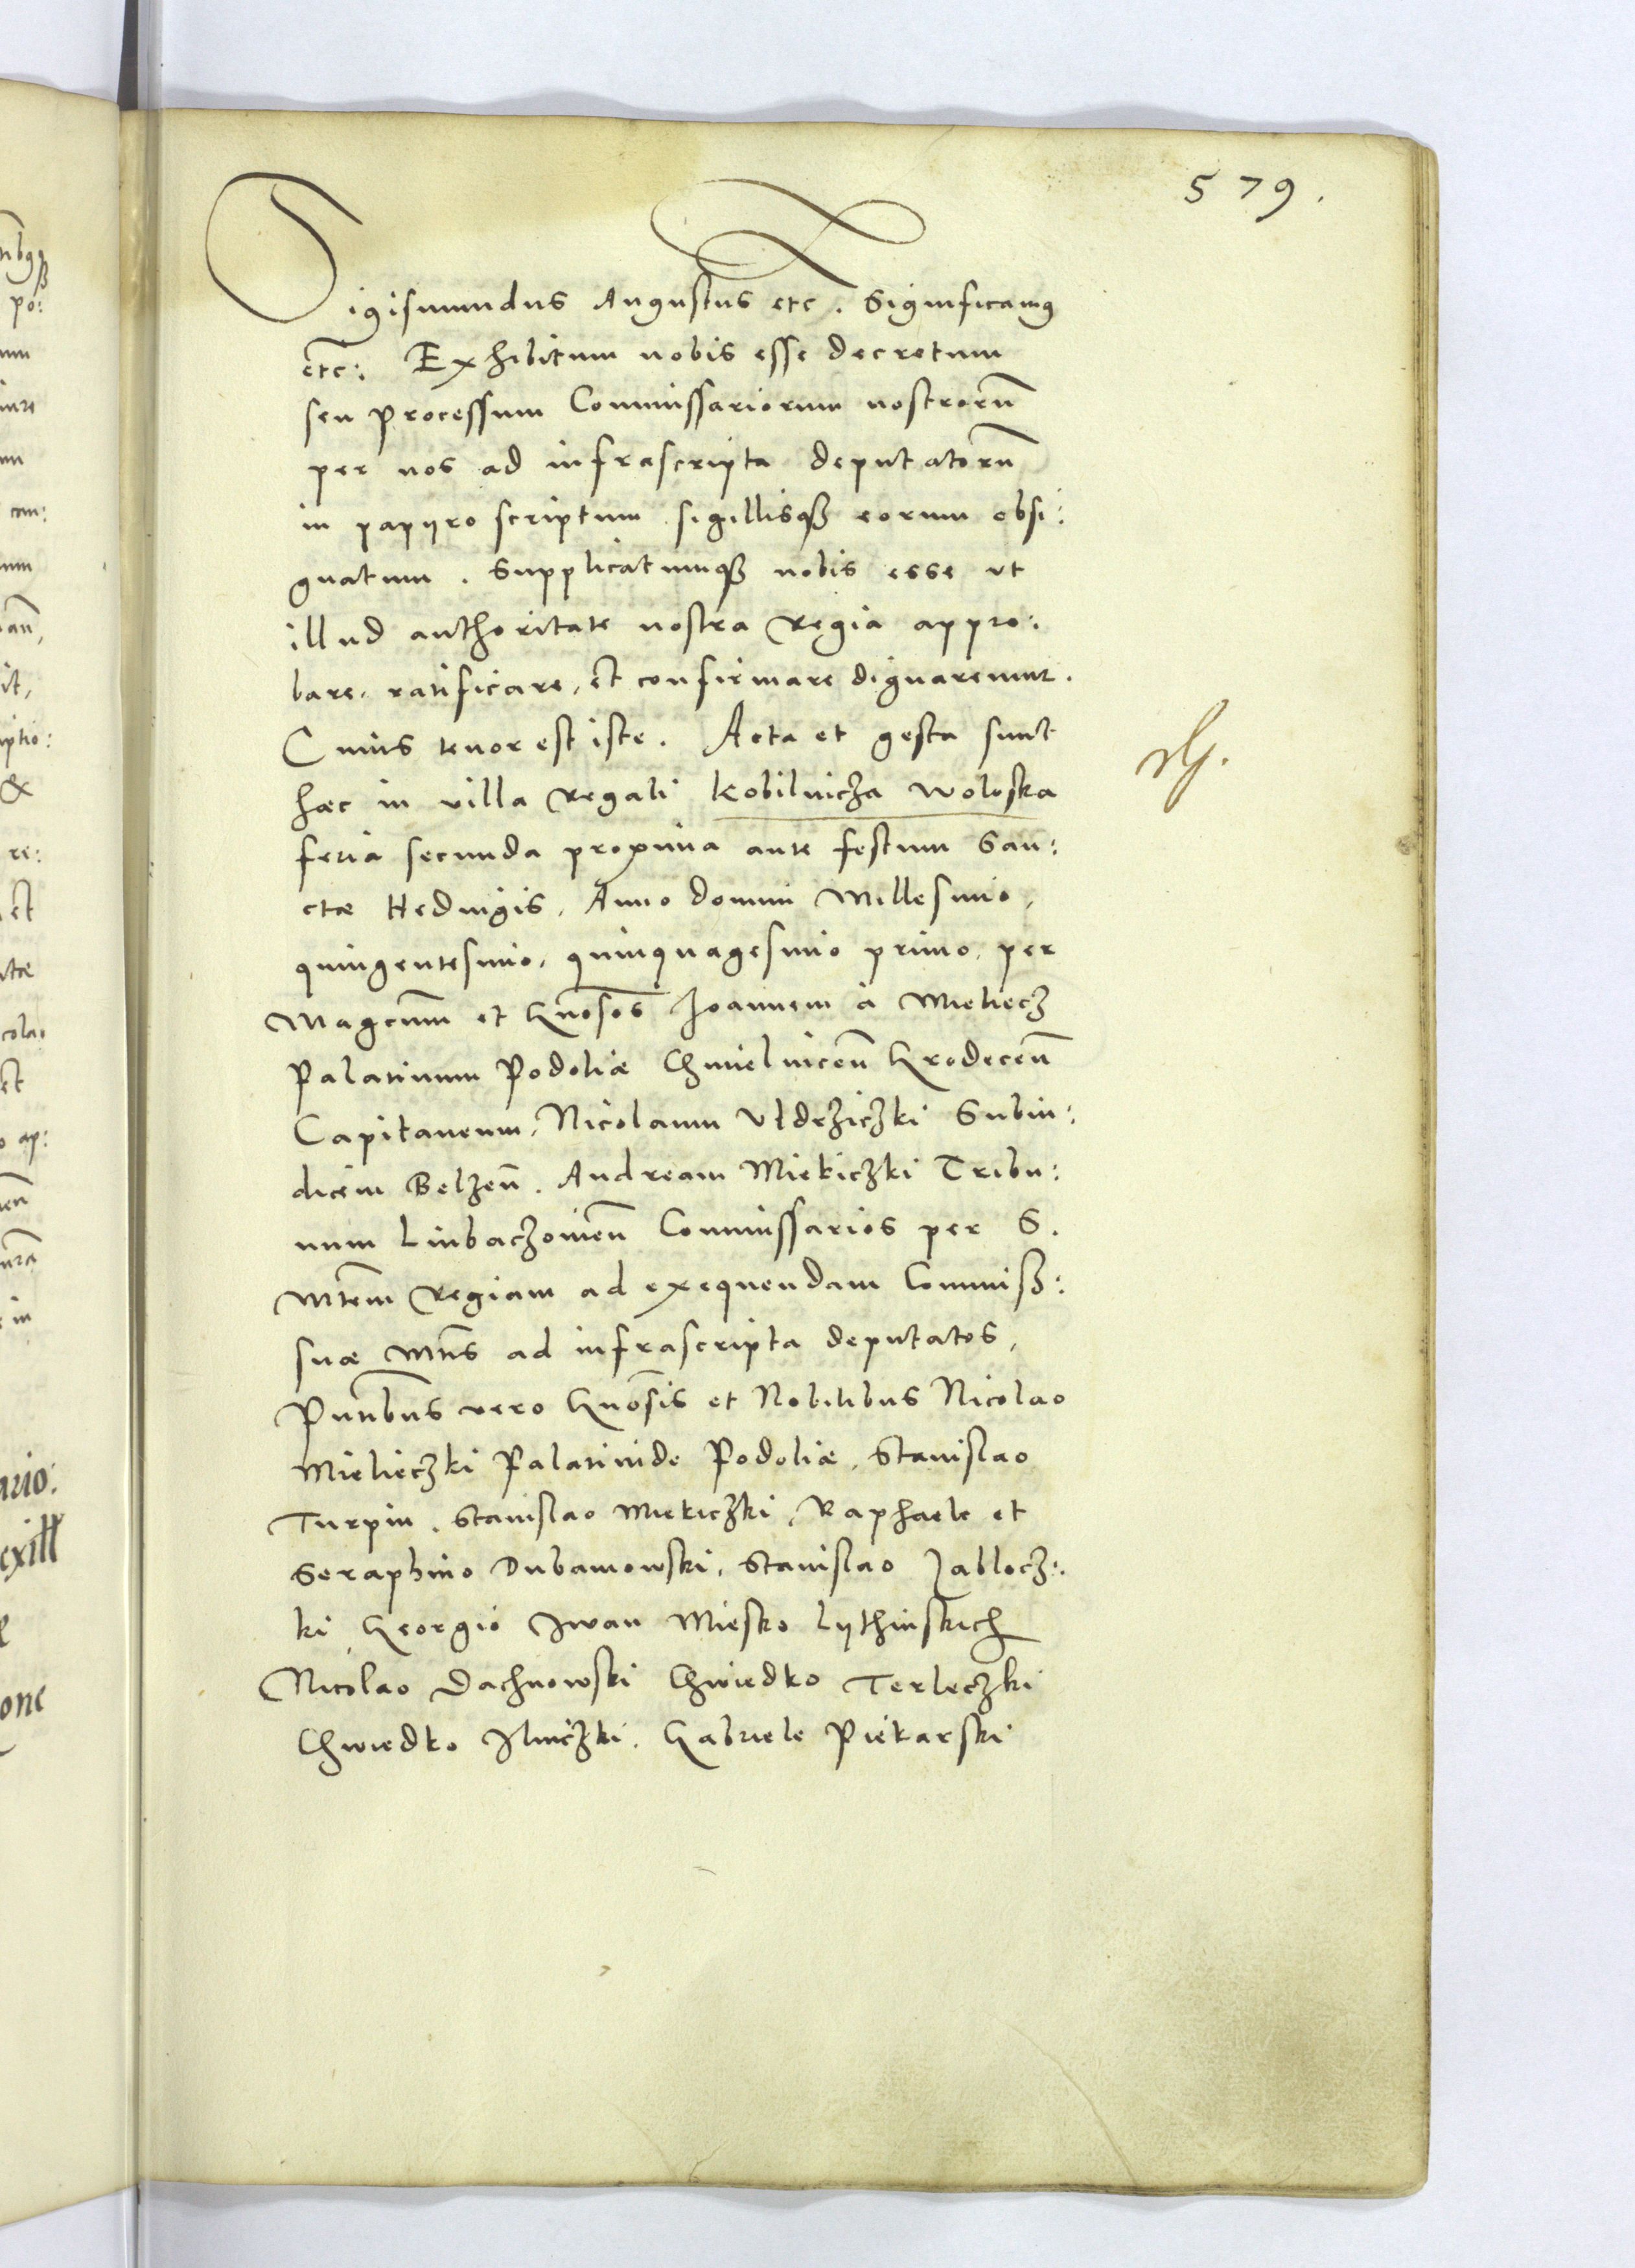 579.
Sigismundus Augustus etc. Significamus
etc: Exhibitum nobis esse decretum
seu processum Commissariorum nostrorũ
per nos ad infrascripta deputatorũ
in papyro scriptum sigillisqß eorum obsi:
gnatum. Supplicatumqß nobis esse ut
illud authoritate nostra Regia appro:
bare, ratificare, et confirmare dignaremur.
Cuius tenor est iste. Acta et gesta sunt
hæc in villa Regali Kobilnicza Woloska
feria secunda proxima ante festum San:
ctæ Heduigis, Anno domini Millesimo,
quingentesimo, quinquagesimo primo, per
Magcum̃ et Gnosos̃ Joannem à Mieliecz
Palatinum Podoliæ Chmielnicen̄ Grodecen̄
Capitaneum, Nicolaum Uldrziczki Subiu:
dicem Belzen̄. Andream Miekiczki Tribu:
num Liubaczouien̄ Commissarios per S.
Mtem̄ Regiam ad exequendam Commiß:
suæ Mtis̄ ad infrascripta deputatos,
Pntibus̄ vero Gnosis̄ et Nobilibus Nicolao
Mielieczki Palatinide Podoliæ, Stanislao
Turpin, Stanislao Miekiczki, Raphaele et
Seraphino Dubanowski, Stanislao Jablocz:
ki Georgio Iwan Miesko Lythinskich
Nicolao Dachnowski Chwiedko Terleczki
Chwiedko Ilniczki. Gabriele Piekarski